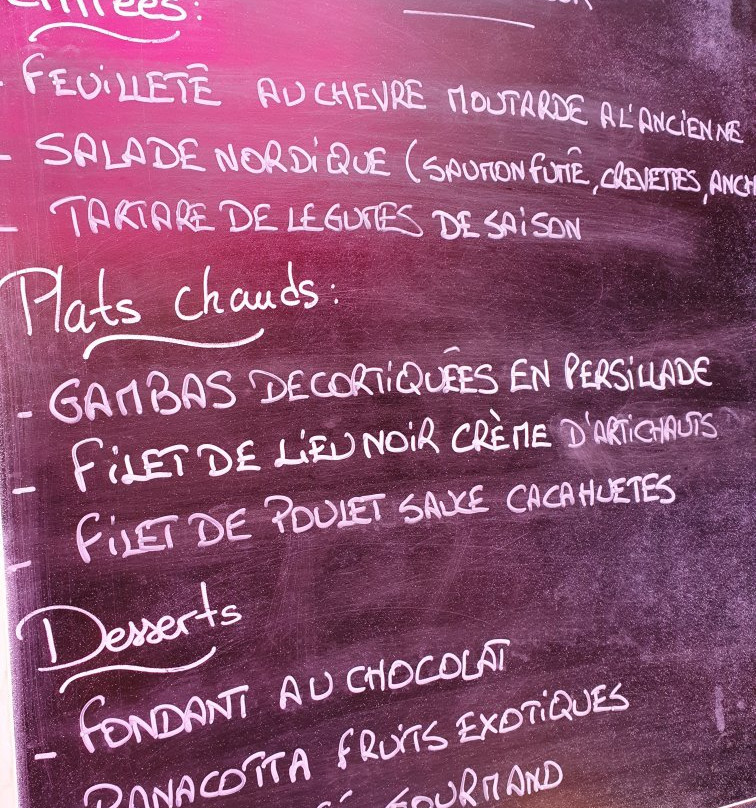 Entrées:
- FEUILLETÉ AU CHEVRE MOUTARDE A L'ANCIENNE
- SALADE NORDIQUE (SAUMON FUMÉ, CREVETTES, ANCH
- TARTARE DE LEGUMES DE SAISON
Plats chauds:
- GAMBAS DECORTIQUÉES EN PERSILLADE
- FILET DE LIEU NOIR CRÈME D'ARTICHAUTS
- FILET DE POULET SAUCE CACAHUETES
Desserts
- FONDANT AU CHOCOLAT
PANACOTTA FRUITS EXOTIQUES
GOURMAND